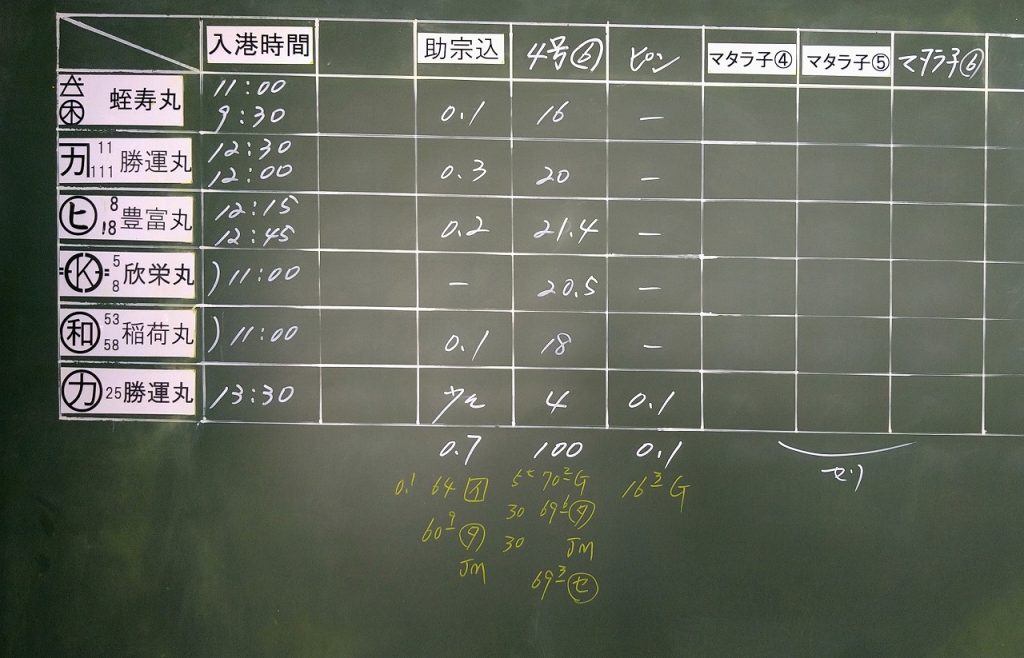 入港時間 助宗込 4号⑥ ピン マタラ子④ マタラ子⑤ マタラ子⑥
蛭寿丸 11:00 9:30 0.1 16 –
カ 11 111 勝運丸 12:30 12:00 0.3 20 –
ヒ 8 18 豊富丸 12:15 12:45 0.2 21.4 –
K 5 8 欣栄丸 ) 11:00 – 20.5 –
和 53 58 稲荷丸 ) 11:00 0.1 18 –
カ 25 勝運丸 13:30 少々 4 0.1
0.7 100 0.1
セリ
0.1 64 イ 70² G 16³ G
60⁹ タ 30 69⁶ タ
30 JM
JM
69³ セ